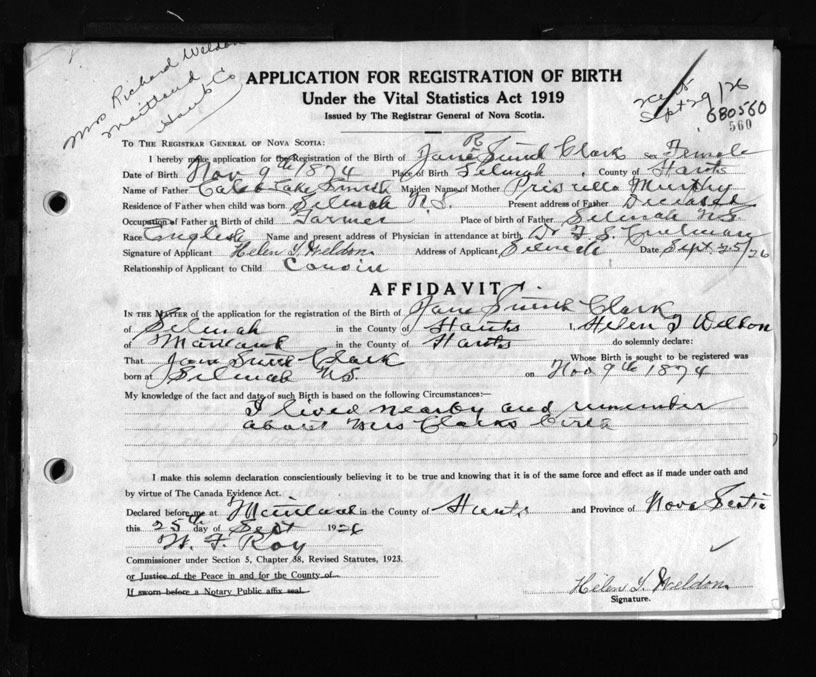 Mrs Richard Weldon
Maitland
Hants Co
APPLICATION FOR REGISTRATION OF BIRTH
Under the Vital Statistics Act 1919
Issued by The Registrar General of Nova Scotia.
Sept 29/26
680560
560
TO THE REGISTRAR GENERAL OF NOVA SCOTIA:
R
I hereby make application for the Registration of the Birth of Jane Smith Clark Sex Female
Date of Birth Nov 9th 1874 Place of Birth Selmah County of Hants
Name of Father Caleb Smith Maiden Name of Mother Priscilla Murphy
Residence of Father when child was born Selmah N.S. Present address of Father Deceased
Occupation of Father at Birth of child Farmer Place of birth of Father Selmah N.S.
Race English Name and present address of Physician in attendance at birth Dr
Signature of Applicant Helen Y. Weldon Address of Applicant Selmah Date Sept. 25/26
Relationship of Applicant to Child Cousin
AFFIDAVIT
IN THE MATTER of the application for the registration of the Birth of Jane Smith Clark
of Selmah in the County of Hants I, Helen Y Weldon
of Maitland in the County of Hants do solemnly declare:
That Jane Smith Clark Whose Birth is sought to be registered was
born at Selmah N.S. on Nov 9th 1874
My knowledge of the fact and date of such Birth is based on the following Circumstances:—
I lived nearby and remember
about Mrs Clarks Birth
I make this solemn declaration conscientiously believing it to be true and knowing that it is of the same force and effect as if made under oath and
by virtue of The Canada Evidence Act.
Declared before me at Maitland in the County of Hants and Province of Nova Scotia
this 25th day of Sept 1926
W. F. Roy
Commissioner under Section 5, Chapter 38, Revised Statutes, 1923.
or Justice of the Peace in and for the County of
If sworn before a Notary Public affix seal.
Helen Y. Weldon
Signature.